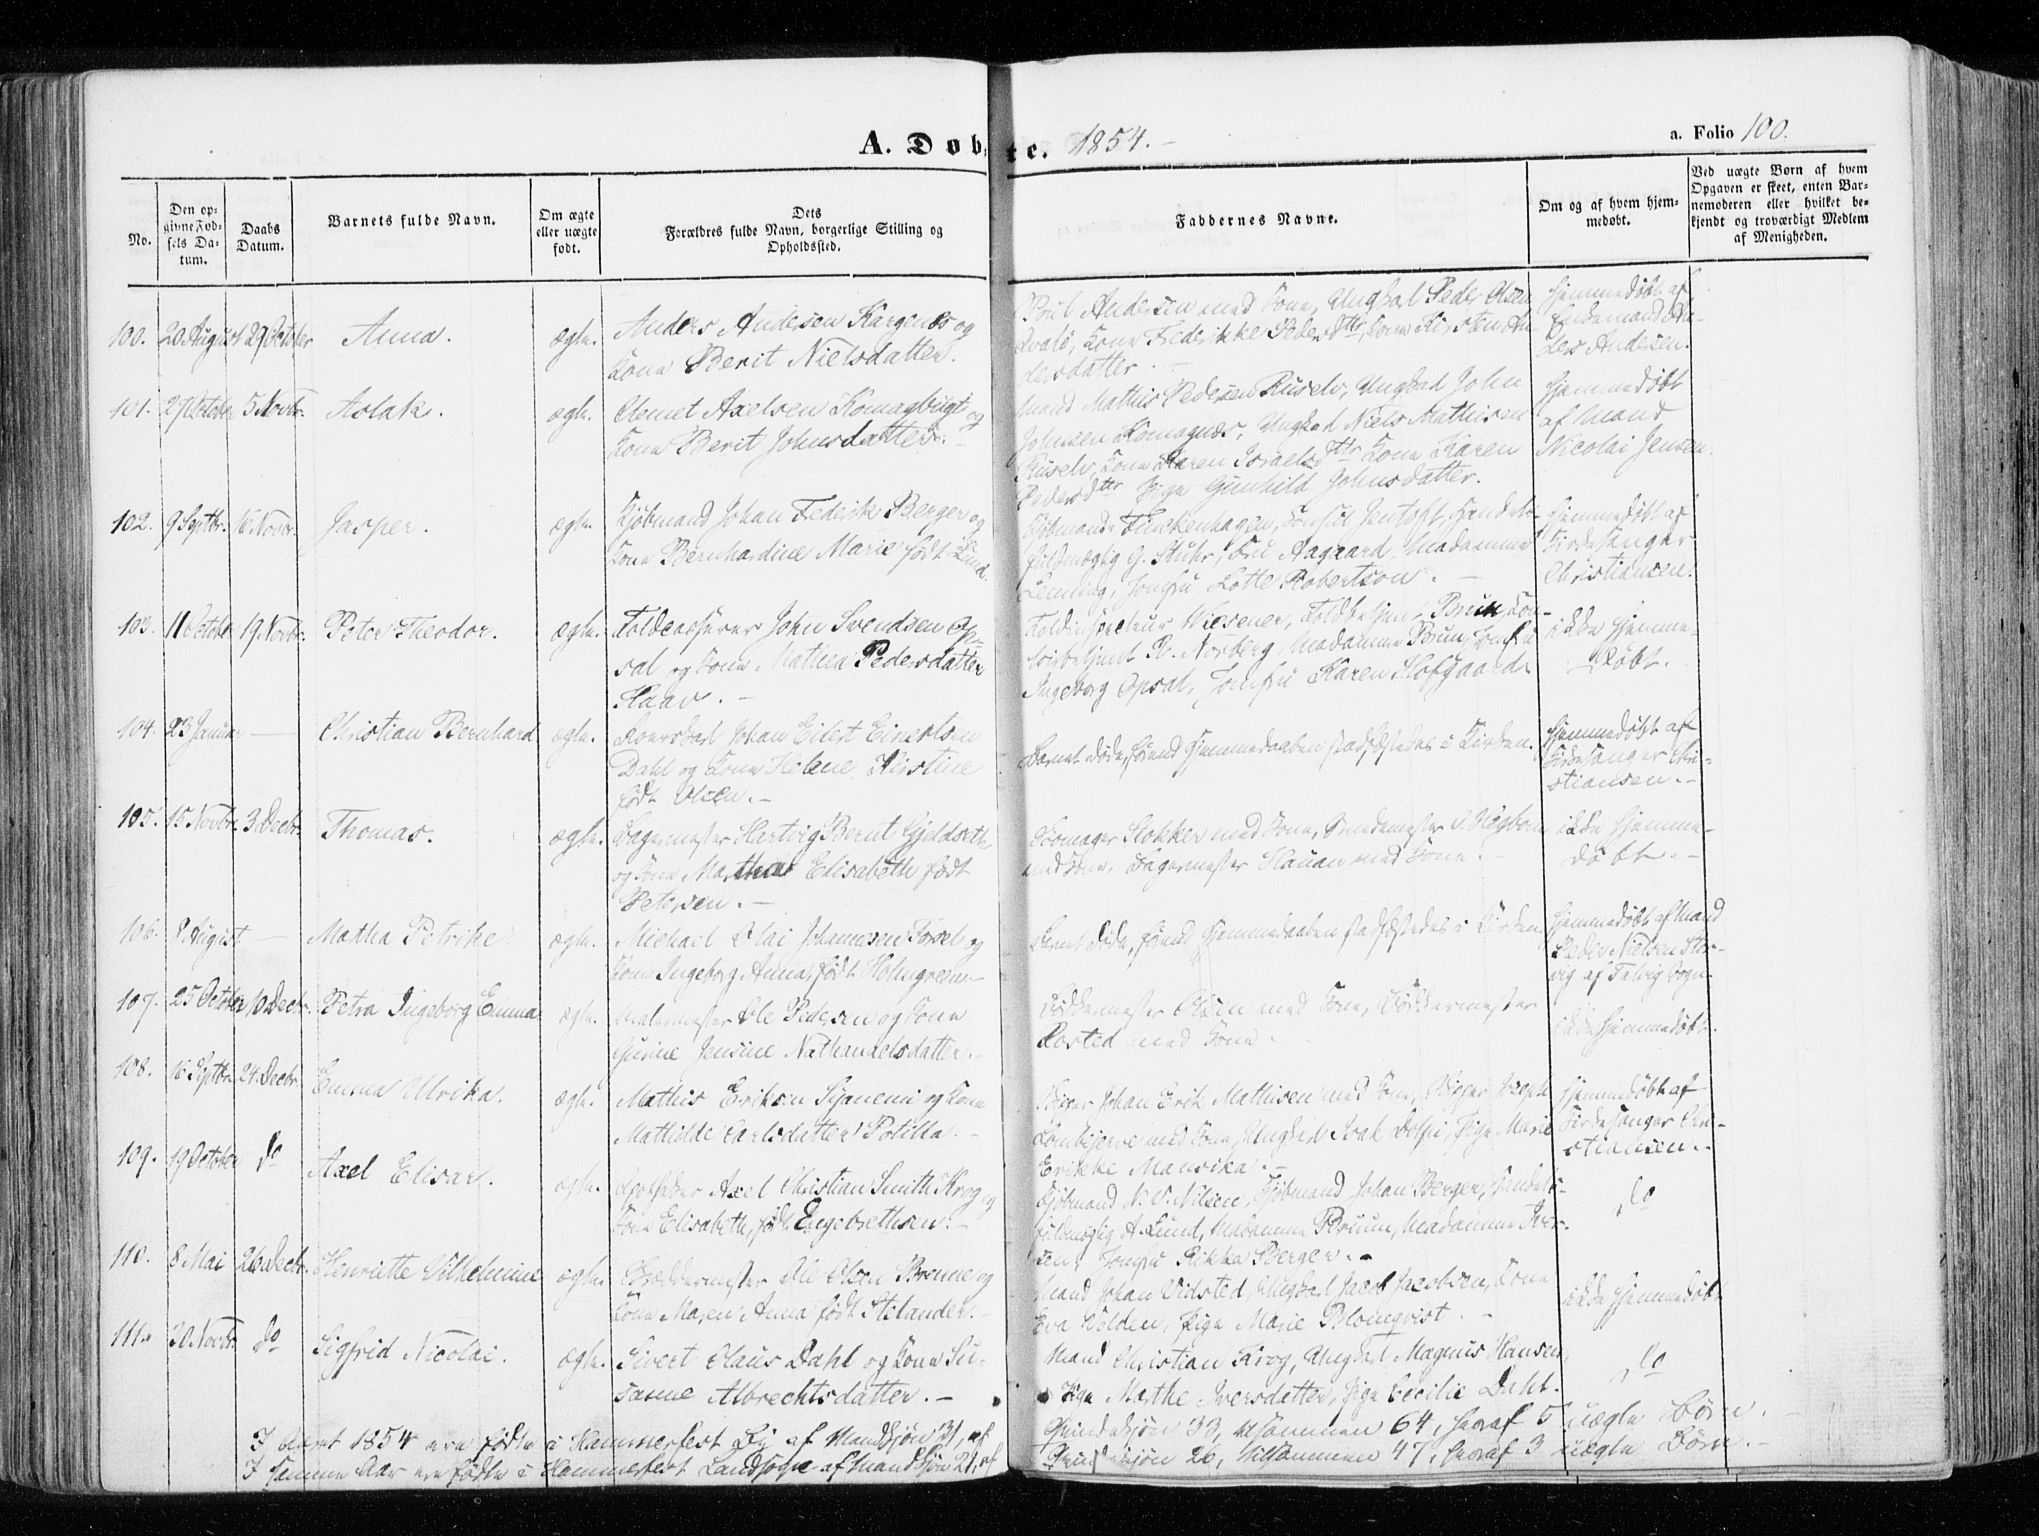 A. Døbte. 1854.
a. Folio 100.
No.
Den opgivne Fødsels Datum.
Daabs Datum.
Barnets fulde Navn.
Om ægte eller uægte født.
Dets Forældres fulde Navn, borgerlige Stilling og Opholdssted.
Faddernes Navne.
Om og af hvem hjemmedøbt.
Ved uægte Børn af hvem Opgaven er skeet, enten Barnemoderen eller hvilket bekjendt og troværdigt Medlem af Menigheden.
100. 20 August 29 October Anna. ægte.
Anders Andersen Kargenæs og
Kone Berit Nielsdatter.
Poul Andersen med Kone, Ungkarl Peder Olsen
Qvalö, Kone Frederikke Pedersdtr, Kone Kirsten An-
dersdatter.
Hjemmedöbt af
Ander-
Andersen.
101. 27 October 5 Novbr. Aslak. ægte.
Clemet Axelsen Komagbugt og
Kone Berit Johnsdatter.
Mand Mathis Pedersen Russelv, Ungkarl John
Johnsen Komagnæs, Ungkarl Niels Mathisen
Russelv, Kone Karen Israelsdtr Kone Karen
Pedersdtr Pige Gunhild Johnsdatter.
Hjemmedöbt
af Mand
Nicolai Jensen.
102. 9 Septbr. 16 Novbr. Jasper. ægte.
Kjöbmand Johan Frederik Berger og
Kone Bernhardine Marie født Lund.
Kjöbmand Finckenhagen, Konsul Jentoft, Handels-
fuldmægtig G. Stuhr, Fru Aagaard, Madamme
Lenning, Jomfru Lotte Robertson.
Hjemmedöbt af
Kirkesanger
Christiansen.
103. 11 October 19 Novbr. Peter Theodor. ægte.
Toldcasserer John Svendsen Op-
sal og Kone Mathea Pedersdatter
Haav.
Toldinspecteur Wiesener, Toldbetjent Bruun, Kon-
toirbetjent P. Norberg, Madamme Bruun, Jomfru
Ingeborg Opsal, Jomfru Karen Hofgaard.
ikke hjemme-
döbt.
104. 23 Januar — Christian Bernhard ægte.
Johan Eilert Einertsen
Dahl og Kone Helene Kirstine
født Olsen.
Barnet döde, förend Hjemmedaaben stadfæstedes i Kirken.
Hjemmedöbt af
Kirkesanger Chri-
stiansen.
105. 15 Novbr. 3 Decbr. Thomas. ægte.
Bagermester Hartvig Bernt Gjeldseth
og Kone Martha Elisabeth født
Petersen.
Skomager Stokker med Kone, Smedemester O. Högbom
med Kone, Bagermester Hauan med Kone.
ikke hjemme-
döbt.
106. 8 August. — Matha Petrike ægte.
Michael Olai Johannesen Forsel og
Kone Ingeborg Anna, født Holmgreen.
Barnet döde, förend Hjemmedaaben stadfæstedes i Kirken
Hjemmedöbt af Mand
Peder Nielsen Stor-
vig af Talvig Sogn.
107. 25 October 10 Decbr. Petra Ingeborg Emma ægte.
Malermester Ole Pedersen og Kone
Gurine Jensine Nathanaelsdatter.
Bökkermester Olsen med Kone, Bökkermester
Rosted med Kone.
ikke hjemmedöbt.
108. 16 Septbr. 24. Decbr. Emma Ulrika. ægte.
Mathis Erikson Sijaneni og Kone
Mathilde Carlsdatter Potilla.
Johan Erik Mathisen med Kone, Joseph
Lombijerve med Kone, Ungkarl Isak Dolpi, Pige Marie
Erikke Mansika.
Hjemmedöbt af
Kirkesanger Chri-
stiansen.
109. 19 October do Axel Elisar. ægte.
Apotheker Axel Christian Smith Krog og
Kone Elisabeth, født Engebrethsen.
Kjöbmand N. V. Nilsen, Kjöbmand Johan Berger, Handels-
fuldmægtig A. Lund, Madamme Bruun, Madamme Iver-
sen, Jomfru Rikka Berger.
do
110. 8 Mai 26 Decbr. Henriette Vilhelmine ægte.
Ole Olsen Brenne og
Kone Maren Anna født Stilander.
Mand Johan Vidsted, Ungkarl Jacob Jacobsen, Kone
Eva Holden, Pige Marie Blomqvist.
ikke hjemmedöbt
111. 20 Novbr. do Sigfrid Nicolai. ægte.
Sivert Olaus Dahl og Kone Su-
sanne Albrechtsdatter.
Mand Christian Krog, Ungkarl Magnus Hansen,
Pige Marthe Iversdatter, Pige Cecilie Dahl.
do
I Aaret 1854 ere födte i Hammerfest By af Mandkjön 31, af
Qvindekjön 33, tilsammen 64, heraf 5 uægte Börn.
I samme Aar ere födte i Hammerfest Landsogn af Mandkjön 21, af
Qvindekjön 26, tilsammen 47, heraf 3 uægte Börn.